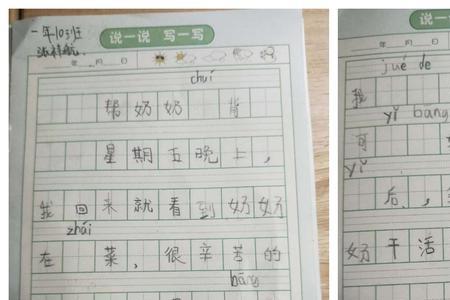 一年103班
说一说 写一写
年 月 日
chuí
帮奶奶 背
星期五晚上,
我回来就看到奶奶
zhāi
在菜,很辛苦的
bāng
说一说
年 月
jué de
我
yǐ bāng
可
yǐ
后,
奶干活